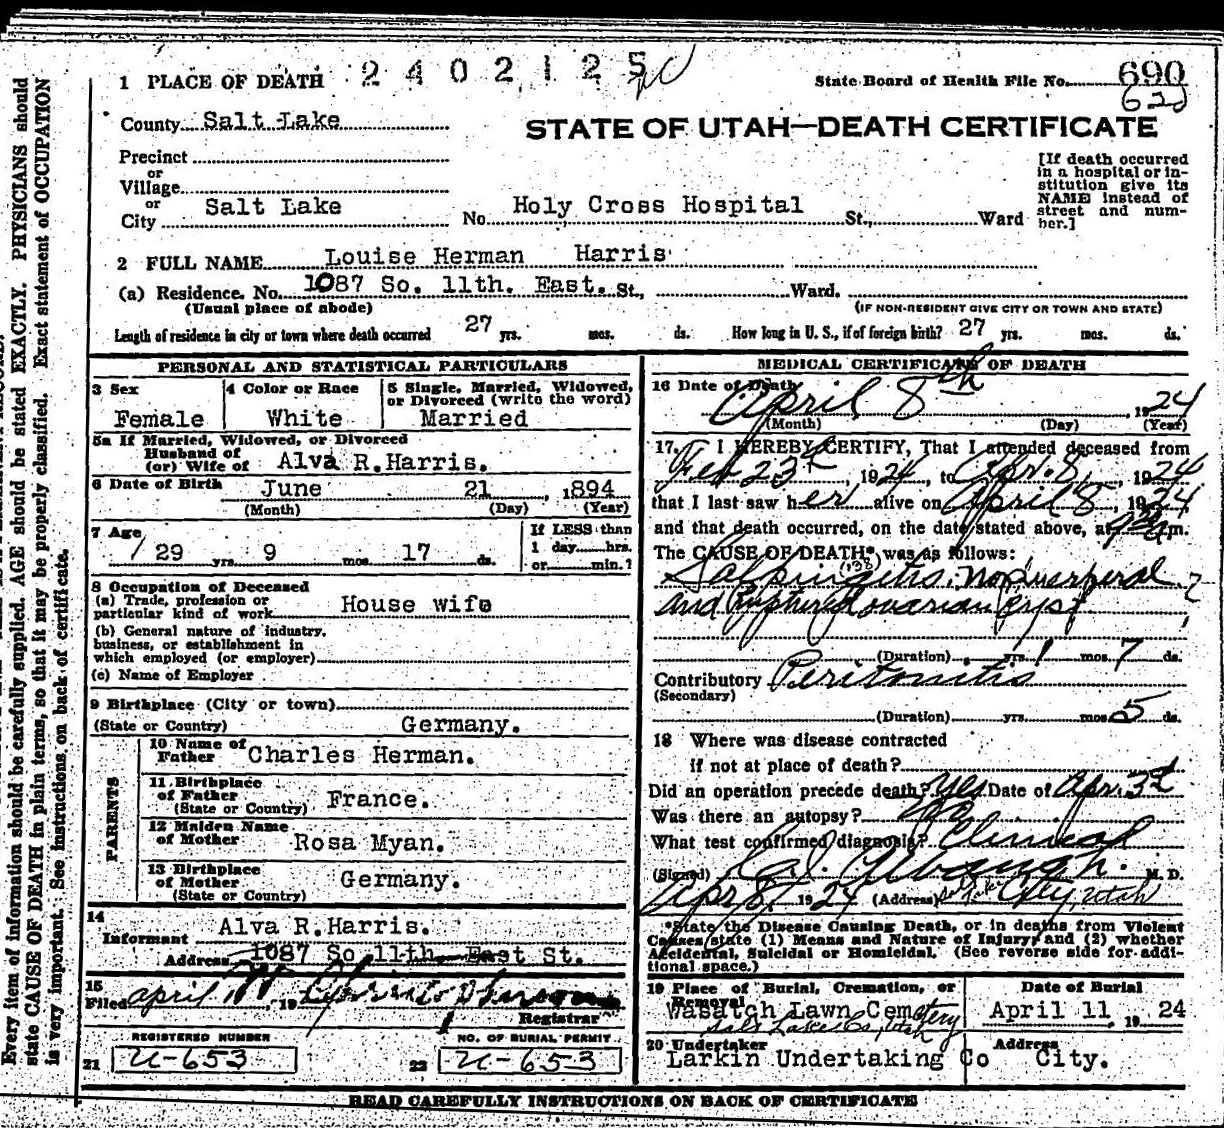 1 PLACE OF DEATH 2402125
State Board of Health File No. 690
County Salt Lake
STATE OF UTAH—DEATH CERTIFICATE
Precinct
or
Village
or
City Salt Lake No. Holy Cross Hospital St., Ward
[If death occurred
in a hospital or in-
stitution give its
NAME instead of
street and num-
ber.]
2 FULL NAME Louise Herman Harris
(a) Residence. No. 1087 So. 11th. East. St., Ward.
(Usual place of abode) (IF NON-RESIDENT GIVE CITY OR TOWN AND STATE)
Length of residence in city or town where death occurred 27 yrs. mos. ds. How long in U. S., if of foreign birth? 27 yrs. mos. ds.
PERSONAL AND STATISTICAL PARTICULARS
3 Sex
Female
4 Color or Race
White
5 Single, Married, Widowed,
or Divorced (write the word)
Married
5a If Married, Widowed, or Divorced
Husband of
(or) Wife of Alva R.Harris.
6 Date of Birth June 21, 1894
(Month) (Day) (Year)
7 Age
29 yrs. 9 mos. 17 ds.
If LESS than
1 day......hrs.
or......min.?
8 Occupation of Deceased
(a) Trade, profession or
particular kind of work House wife
(b) General nature of industry,
business, or establishment in
which employed (or employer)
(c) Name of Employer
9 Birthplace (City or town)
(State or Country) Germany.
PARENTS
10 Name of
Father Charles Herman.
11 Birthplace
of Father
(State or Country) France.
12 Maiden Name
of Mother Rosa Myan.
13 Birthplace
of Mother
(State or Country) Germany.
14
Informant Alva R.Harris.
Address 1087 So 11th East St.
15
Filed April 19
Registrar
REGISTERED NUMBER
21 U-653
NO. OF BURIAL PERMIT
22 U-653
MEDICAL CERTIFICATE OF DEATH
16 Date of Death
April 8th, 1924
(Month) (Day) (Year)
17 I HEREBY CERTIFY, That I attended deceased from
Feb 23, 1924, to Apr. 8, 1924
that I last saw her alive on April 8, 1924
and that death occurred, on the date stated above, at m.
The CAUSE OF DEATH* was as follows:
Salpingitis. (138)
and Ovarian Cyst
(Duration) yrs. 1 mos. 7 ds.
Contributory Peritonitis
(Secondary)
(Duration) yrs. mos. 5 ds.
18 Where was disease contracted
if not at place of death?
Did an operation precede death? yes Date of Apr. 3
Was there an autopsy? no
What test confirmed diagnosis? Clinical
(Signed) M. D.
Apr 8, 1924 (Address) Salt Lake City, Utah
*State the Disease Causing Death, or in deaths from Violent
Causes, state (1) Means and Nature of Injury; and (2) whether
Accidental, Suicidal or Homicidal. (See reverse side for addi-
tional space.)
19 Place of Burial, Cremation, or
Removal
Wasatch Lawn Cemetery
Salt Lake Co, Utah
Date of Burial
April 11, 1924
20 Undertaker
Larkin Undertaking Co
Address
City.
READ CAREFULLY INSTRUCTIONS ON BACK OF CERTIFICATE
Every item of information should be carefully supplied. AGE should be stated EXACTLY. PHYSICIANS should
state CAUSE OF DEATH in plain terms, so that it may be properly classified. Exact statement of OCCUPATION
is very important. See instructions on back of certificate.